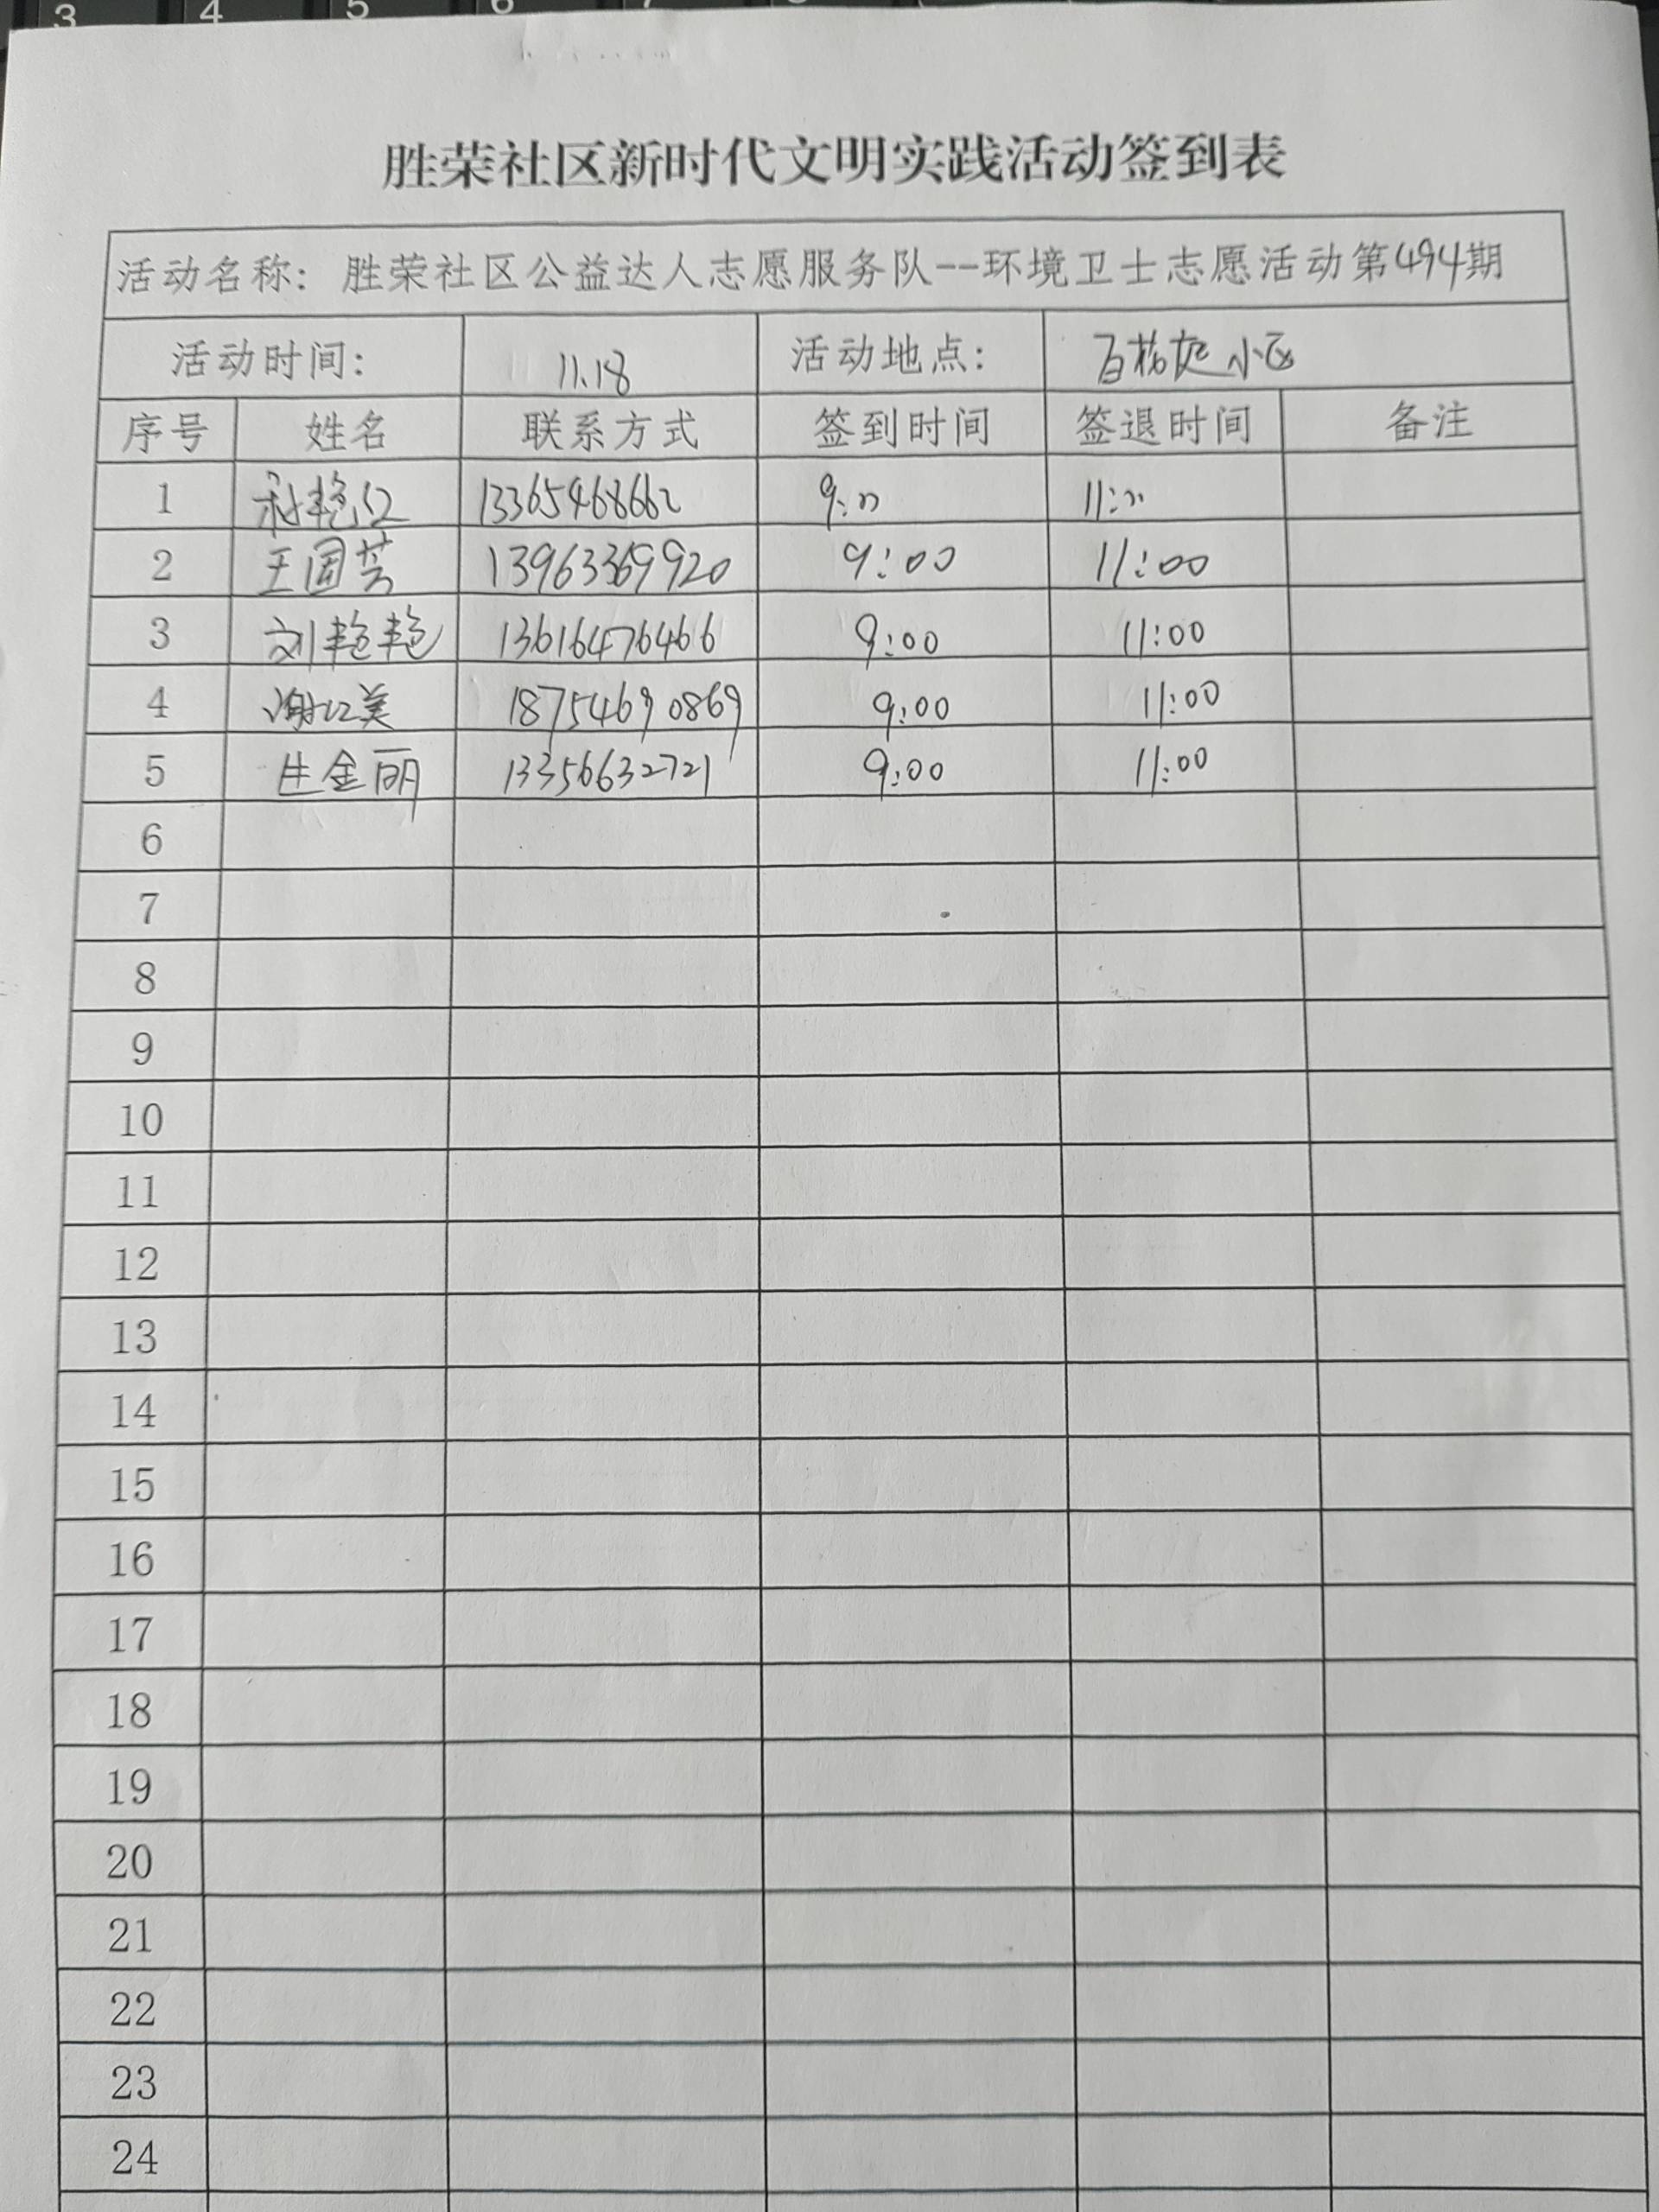 3 4 5 6 7
胜荣社区新时代文明实践活动签到表
活动名称：胜荣社区公益达人志愿服务队--环境卫士志愿活动第494期
活动时间： 11.18 活动地点： 小区
序号 姓名 联系方式 签到时间 签退时间 备注
1 13365468662 9:00 11:00
2 王国芸 13963369920 9:00 11:00
3 刘艳艳 13616476466 9:00 11:00
4 谢红美 18754690869 9:00 11:00
5 生金丽 13356632721 9:00 11:00
6
7
8
9
10
11
12
13
14
15
16
17
18
19
20
21
22
23
24